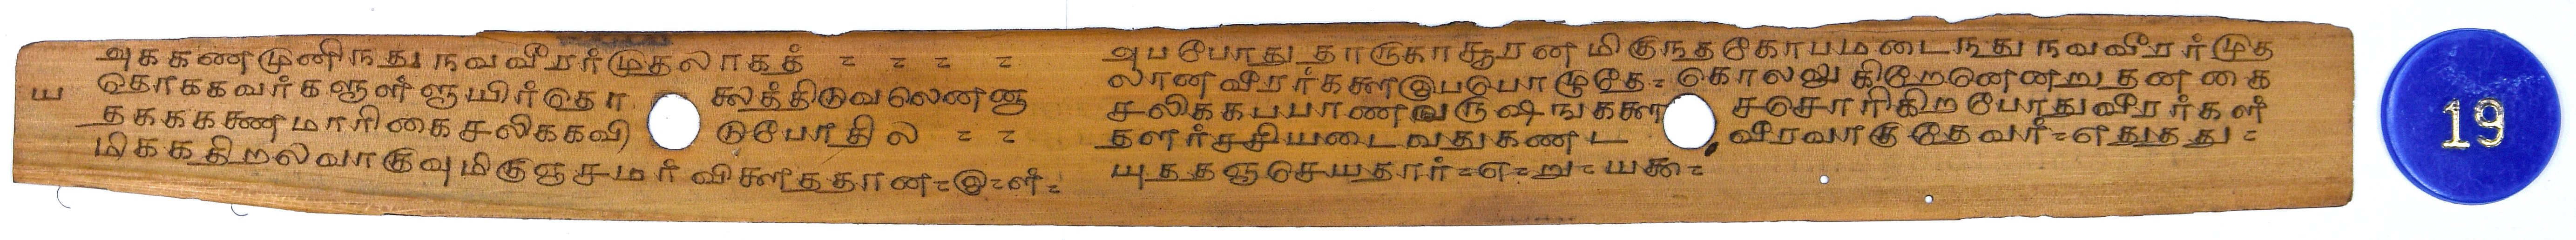 அககணமுனிநது நவவீரர்முதலாகத் = = = =
தொககவர்களுள்ளுயிர்தொ லைத்திடுவலெனனு
ய
தககககணமாரிகைசலிககவி டுபோதில = =
மிககதிறலவாகுவுமிகுஞசமர் விளைததான=இ=ள்=
அபபோது தாருகாசூரன மிகுநதகோபமடைநது நவவீரர்முத
லானவீரர்களைஇபபொழுதே= கொலலுகிறேனெனறு தனகை
சலிககபபாணவருஷஙகளை சசொரிகிறபோதுவீரர்கள்
தளர்சசியடைவதுகண்ட வீரவாகுதேவர்=எதுதது=
யுததஞசெயதார்=எ=று= யக=
19